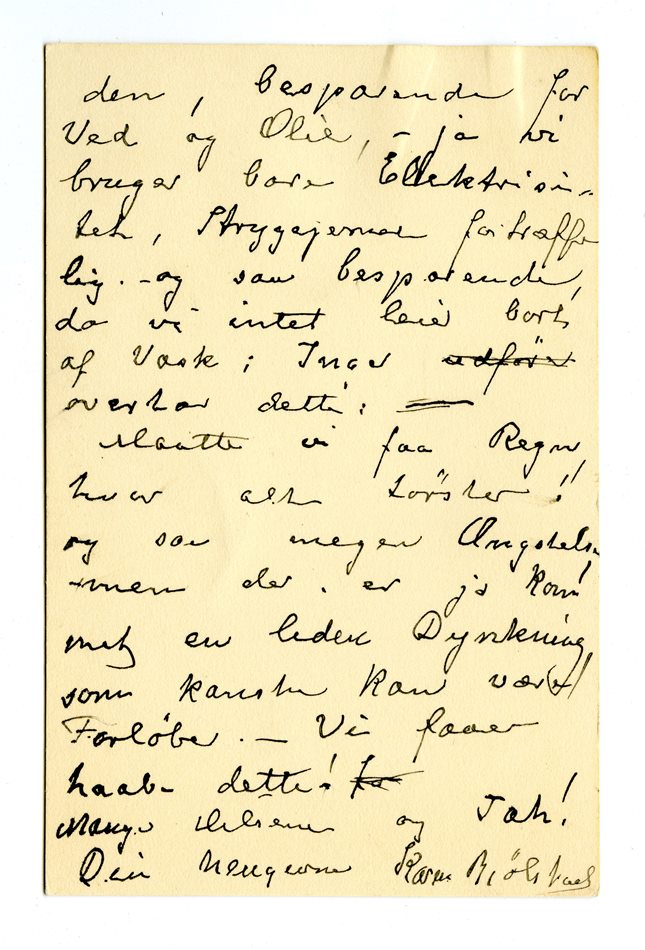 den, besparende for
Ved og Olie, - ja vi
bruger bare Ellektrisi-
tet, Strygejernet fortræffe
lig. - og saa besparende,
da vi intet leie bort
af Vask; Inga udföre
overtar dette: —
Maatte vi faa Regn,
hvor alt törster!!
og saa megen Ængstelse
- men der er jo kom
met en liden Dynkning
som kanske kan være
Forløber. — Vi faaer
haabe dette! fa
Mange Hilsener og Tak!
Din hengivne Karen